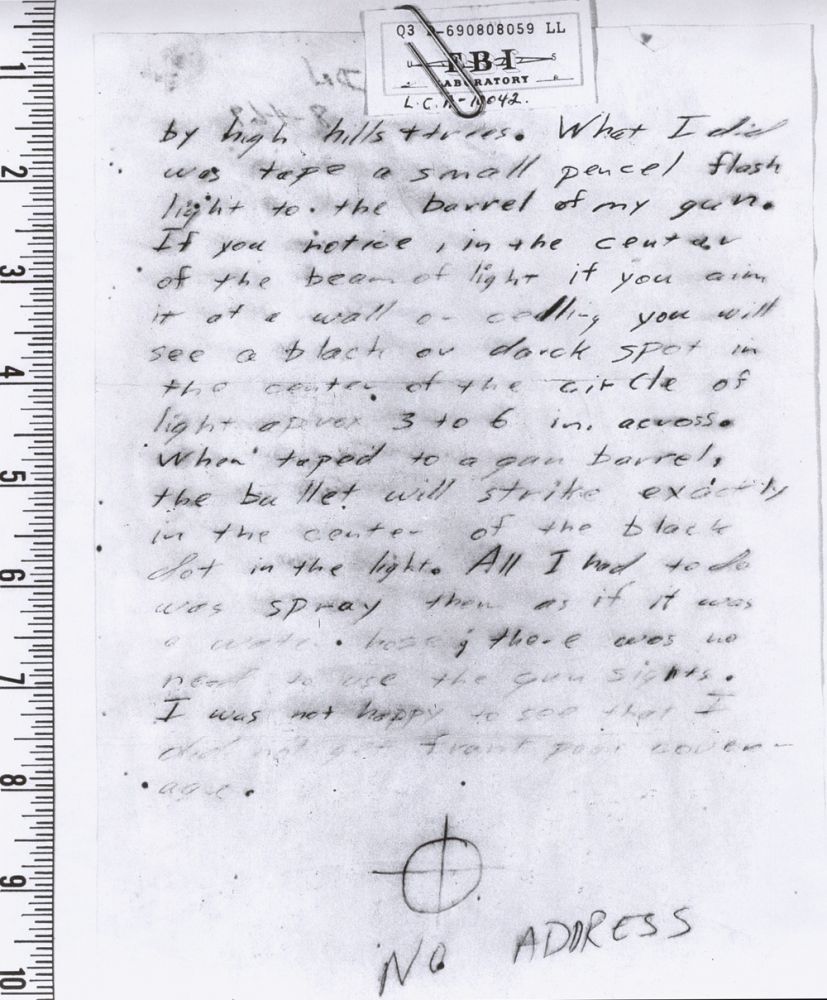 Q3 D-690808059 LL
U S
FBI
LABORATORY
L.C.A-10042.
by high hills & trees. What I did
was tape a small pencel flash
light to the barrel of my gun.
If you notice, in the center
of the beam of light if you aim
it at a wall or ceiling you will
see a black or darck spot in
the center of the circle of
light aprox 3 to 6 in. across.
When taped to a gun barrel,
the bullet will strike exactly
in the center of the black
dot in the light. All I had to do
was spray them as if it was
a water hose; there was no
need to use the gun sights.
I was not happy to see that I
did not get front page cover-
age.
NO ADDRESS
1
2
3
4
5
6
7
8
9
10